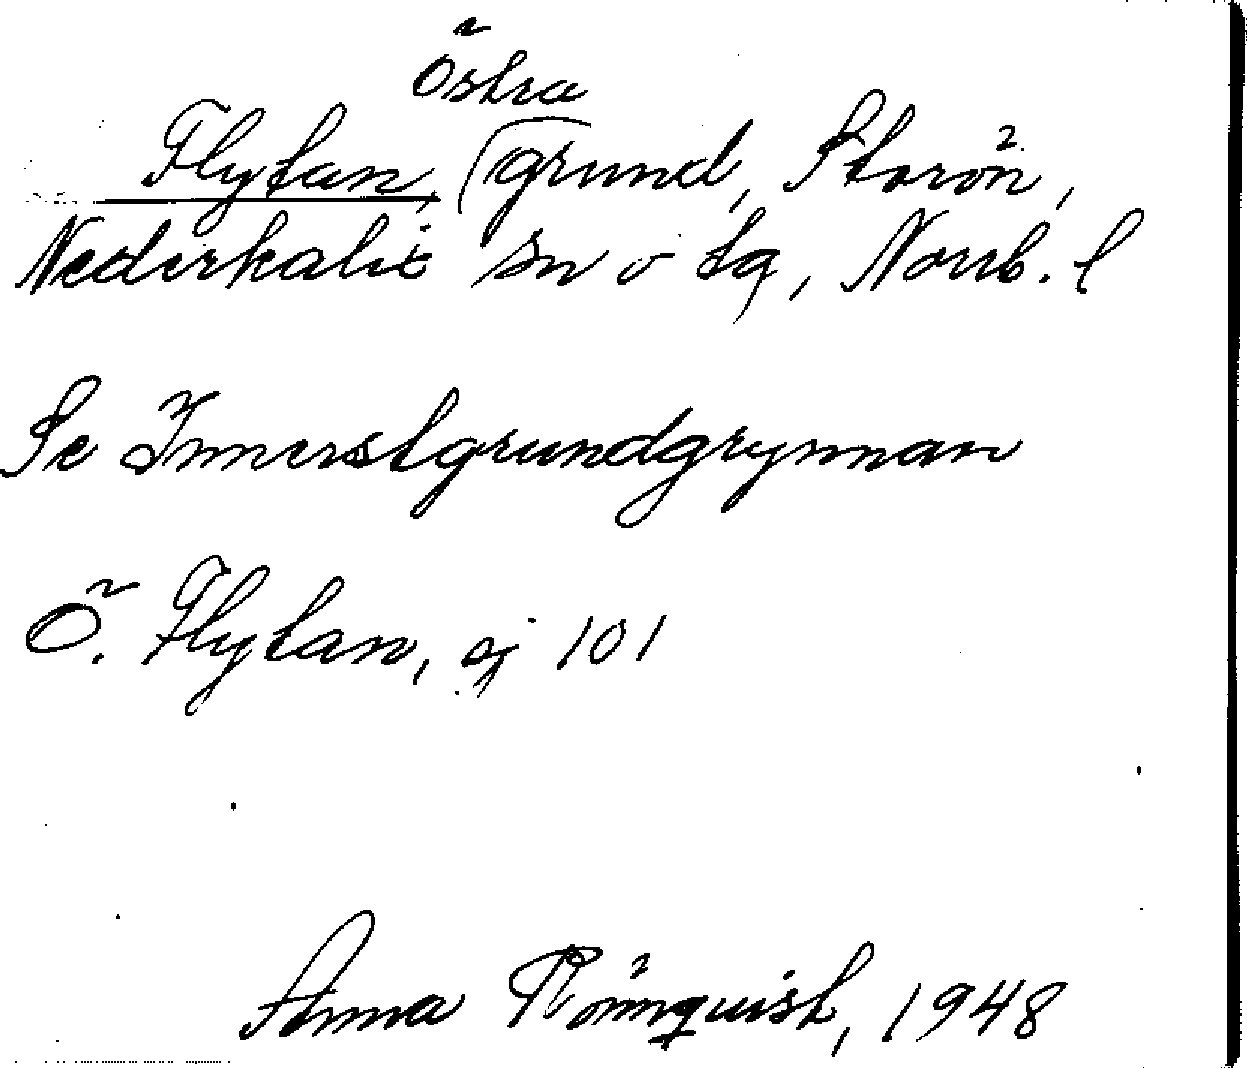 Östra
Flytan, grund, Storön,
Nederkalix sn o tg, Norrb. l
Se Innerstgrundgrynnan
Ö. Flytan, ej 101
Anna Rönnquist, 1948